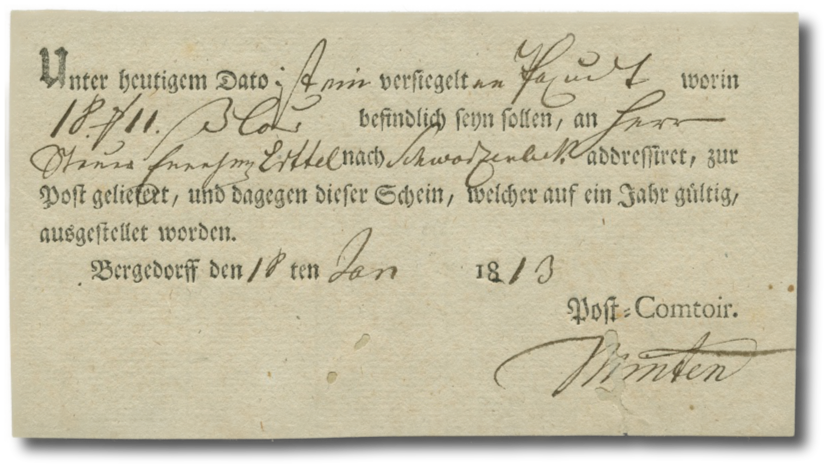 Unter heutigem Dato ist ein versiegelten worin
18 11 befindlich seyn sollen, an Herr
Steuer Einnehmer nach Schwarzenbek addressiret, zur
Post geliefert, und dagegen dieser Schein, welcher auf ein Jahr gültig,
ausgestellet worden.
Bergedorff den 18 ten Jan 1813
Post-Comtoir.